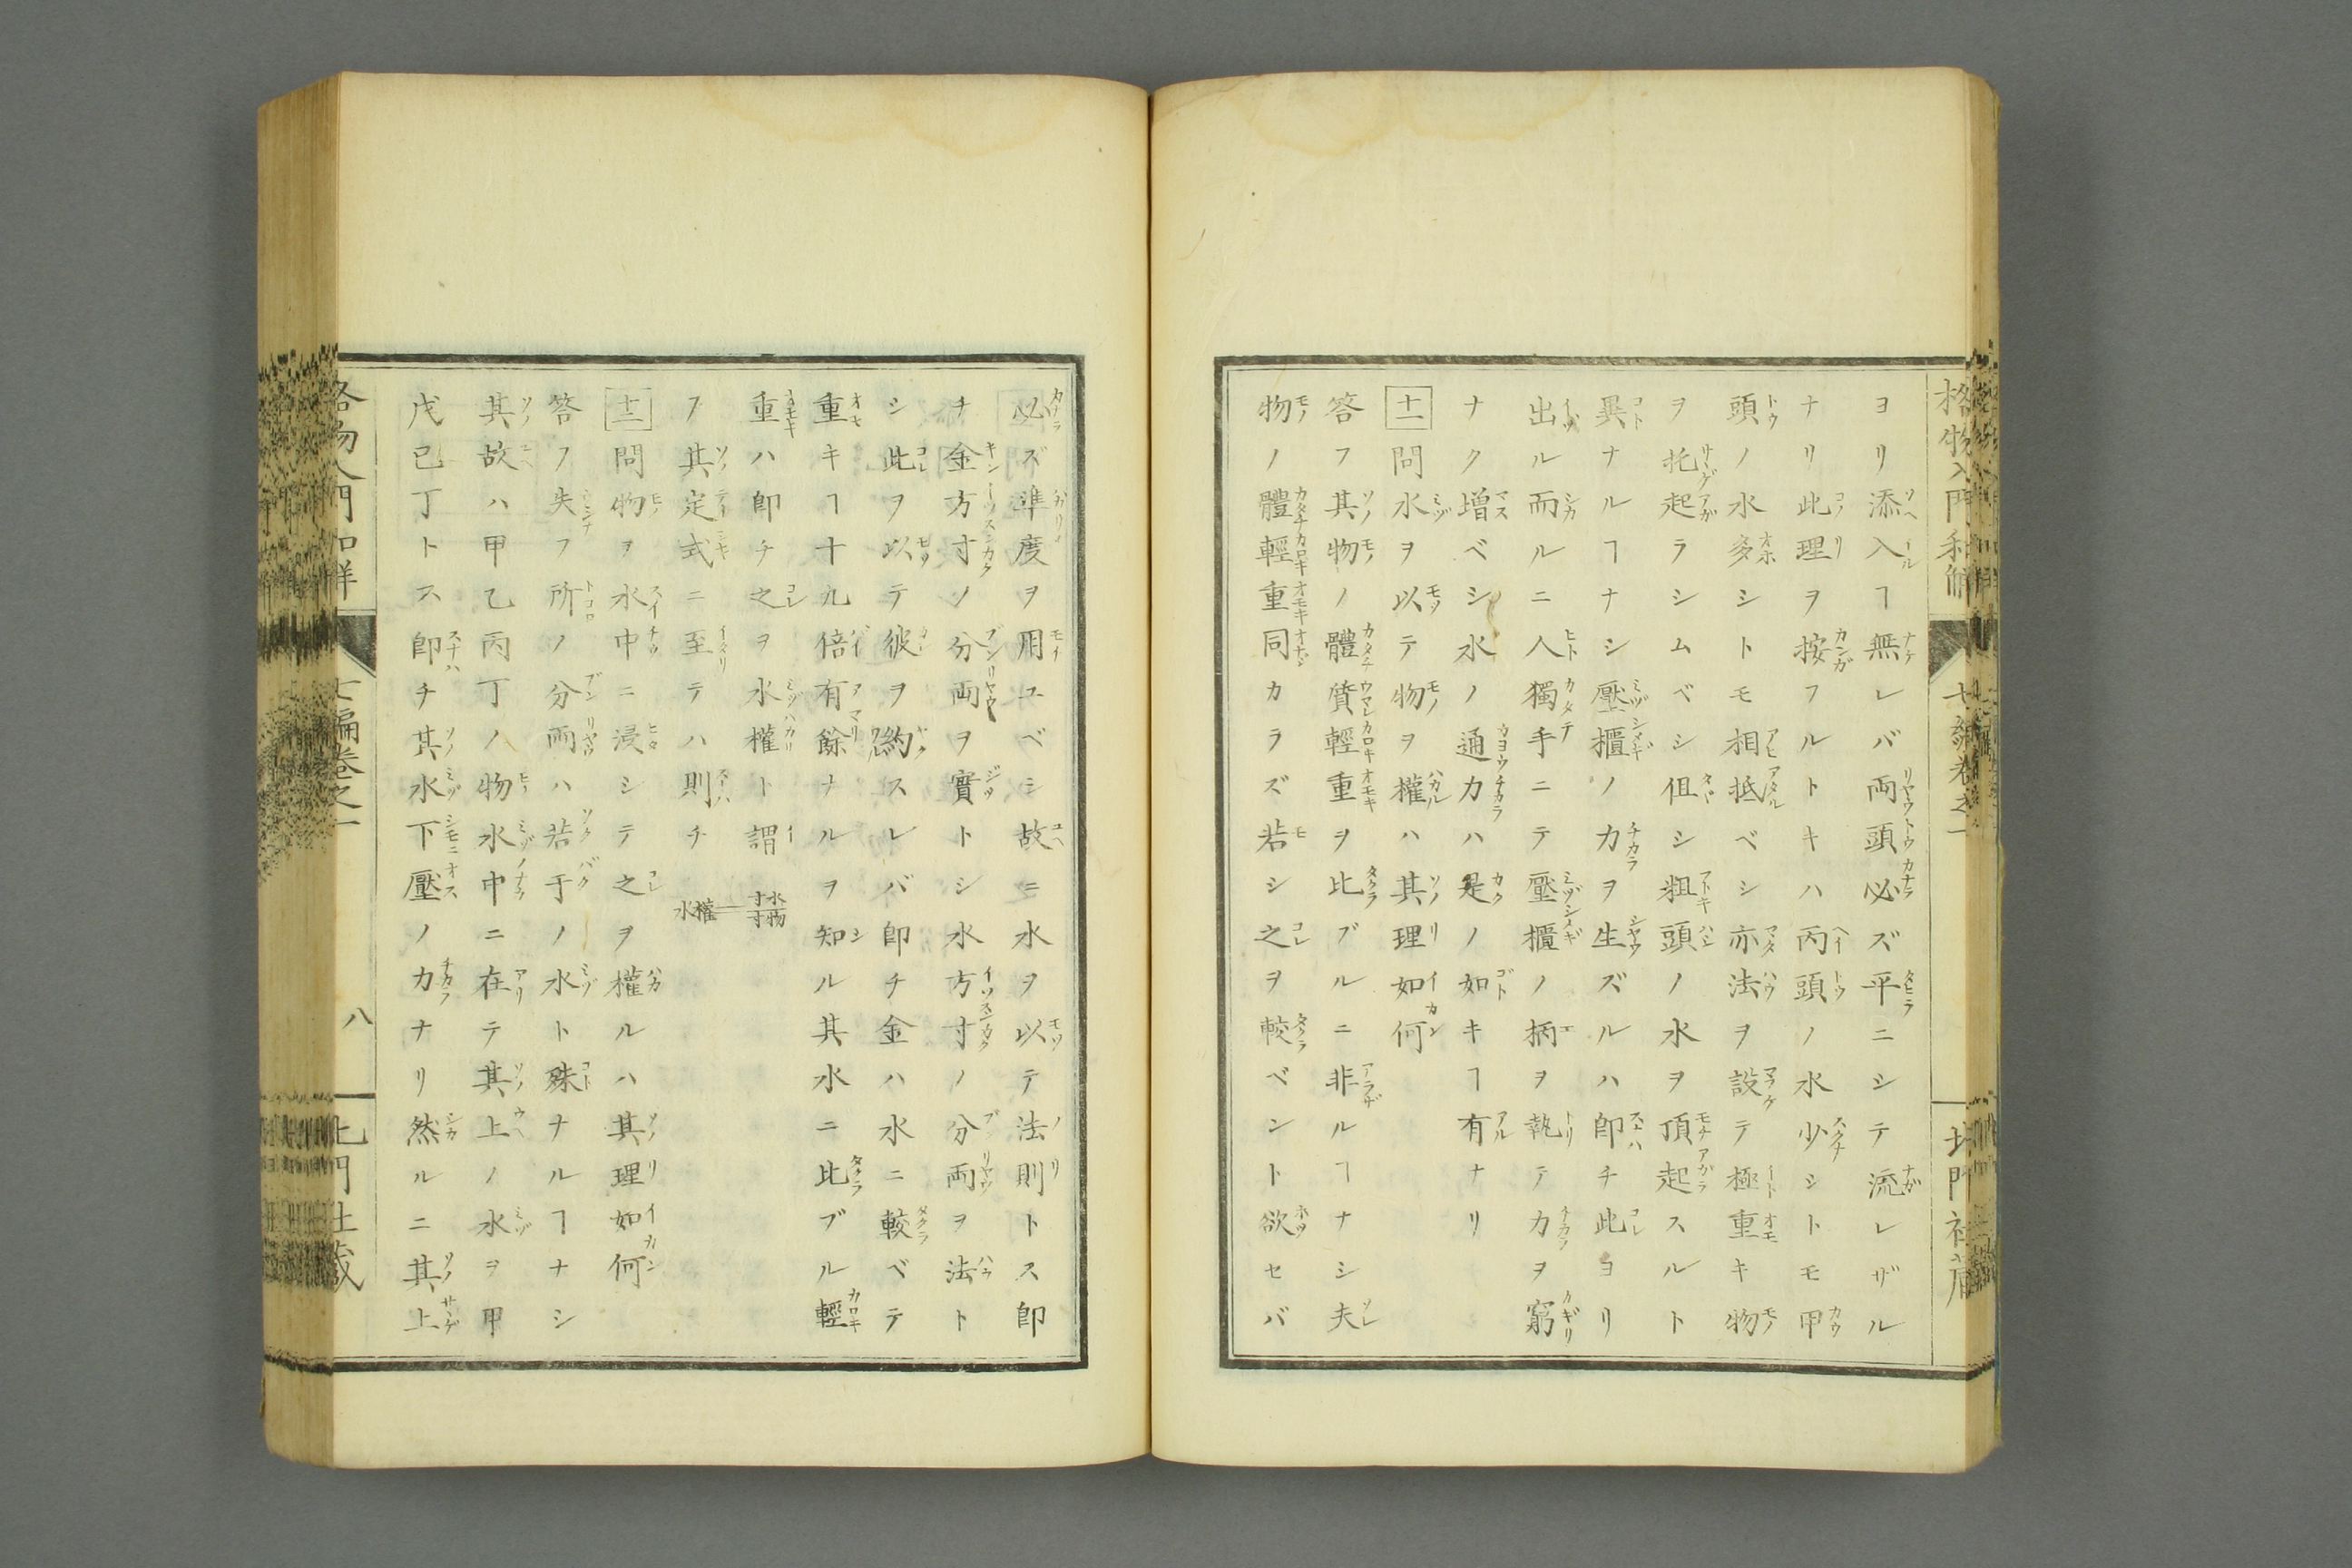 ヨリ添入ヿ無レバ両頭必ズ平ニシテ流レザル
ナリ此理ヲ按フルトキハ丙頭ノ水少シトモ甲
頭ノ水多シトモ相抵ベシ亦法ヲ設テ極重キ物
ヲ托起ラシムベシ伹シ粗頭ノ水ヲ頂起スルト
異ナルヿナシ壓櫃ノ力ヲ生ズルハ即チ此ヨリ
出ル而ルニ人獨手ニテ壓櫃ノ柄ヲ執テ力ヲ窮
ナク增ベシ水ノ通力ハ是ノ如キヿ有ナリ
十一 問水ヲ以テ物ヲ權ハ其理如何
答フ其物ノ體質輕重ヲ比ブルニ非ルヿナシ夫
物ノ體輕重同カラズ若シ之ヲ較ベント欲セバ
必ズ準度ヲ用ユベシ故ニ水ヲ以テ法則トス即
チ金方寸ノ分両ヲ實トシ水方寸ノ分両ヲ法ト
シ此ヲ以テ彼ヲ約スレバ即チ金ハ水ニ較ベテ
重キヿ十九倍有餘ナルヲ知ル其水ニ比ブル輕
重ハ即チ之ヲ水權ト謂
フ其定式ニ至テハ則チ
水權＝水寸物寸
十二 問物ヲ水中ニ浸シテ之ヲ權ルハ其理如何
答フ失フ所ノ分両ハ若于ノ水ト殊ナルヿナシ
其故ハ甲乙丙丁ノ物水中ニ在テ其上ノ水ヲ甲
戊已丁トス即チ其水下壓ノ力ナリ然ルニ其上
格物入門和解
七編巻之一
八
北門社藏